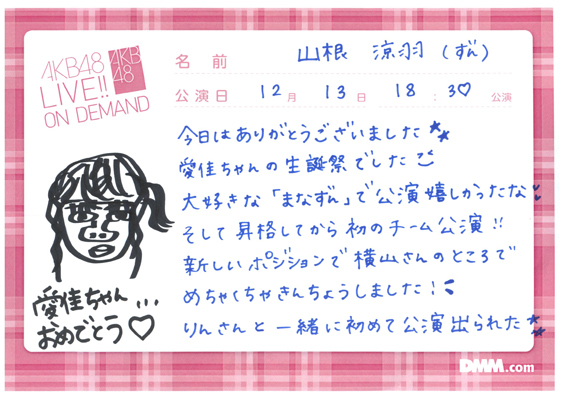 AKB48
LIVE!!
ON DEMAND
AKB
48
名前 山根 涼羽 (ずん)
公演日 12月 13日 18:30 公演
今日はありがとうございました
愛佳ちゃんの生誕祭でした
大好きな「まなずん」で公演嬉しかったな
そして昇格してから初のチーム公演!!
新しいポジションで横山さんのところで
めちゃくちゃきんちょうしました!
りんさんと一緒に初めて公演出られた
愛佳ちゃん...
おめでとう♡
DMM.com